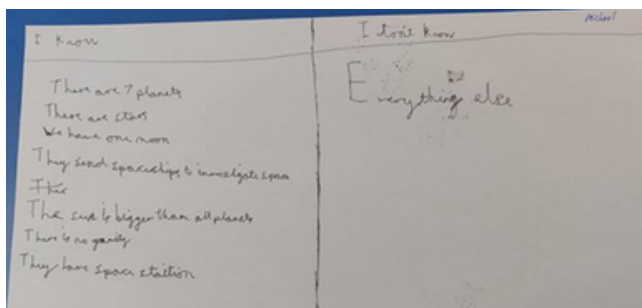 I know
There are 7 planets
There are stars
We have one moon
They send spaceships to investigate space
The sun is bigger than all planets
There is no gravity
They have space staition
I don't know
Everything else